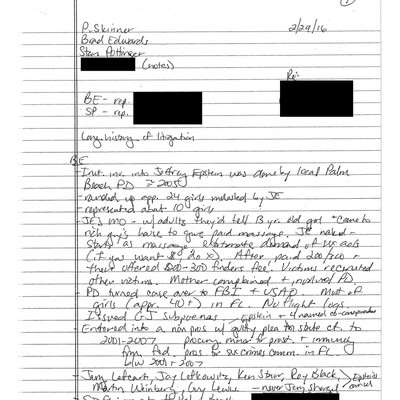 P. Skinner 2/29/16
Brad Edwards
Stan Pottinger
(notes)
Re:
BE - rep.
SP - rep.
Long history of litigation
BE
- Init. inv. into Jeffrey Epstein was done by local Palm
Beach PD 2005
- rounded up app. 24 girls molested by JE
- represented about 10 girls
- JE's MO - w/ adults they'd tell 13 yr. old girl "Come to
rich guy's house to give paid massage. JE naked -
starts as massage, demand of sex acts
(if you want $ do X). After paid 200/300 -
then offered $200-300 finders fee. Victims recruited
other victims. Mother complained + involved PD
PD turned case over to FBI + USAO. Most of
girls (appr. 40+) in FL. No flight logs.
Issued GJ subpoenas - Epstein + 4 named co-conspirators
Entered into a non pros w/ guilty plea to state ct. to
2001-2007 procuring minor to prost. + immunity
from fed. pros for sex crimes comm. in FL
b/w 2001 + 2007
- Jay Lefkowitz, Ken Starr, Roy Black,
Martin Weinberg, Guy Lewis - never Epstein's
counsel